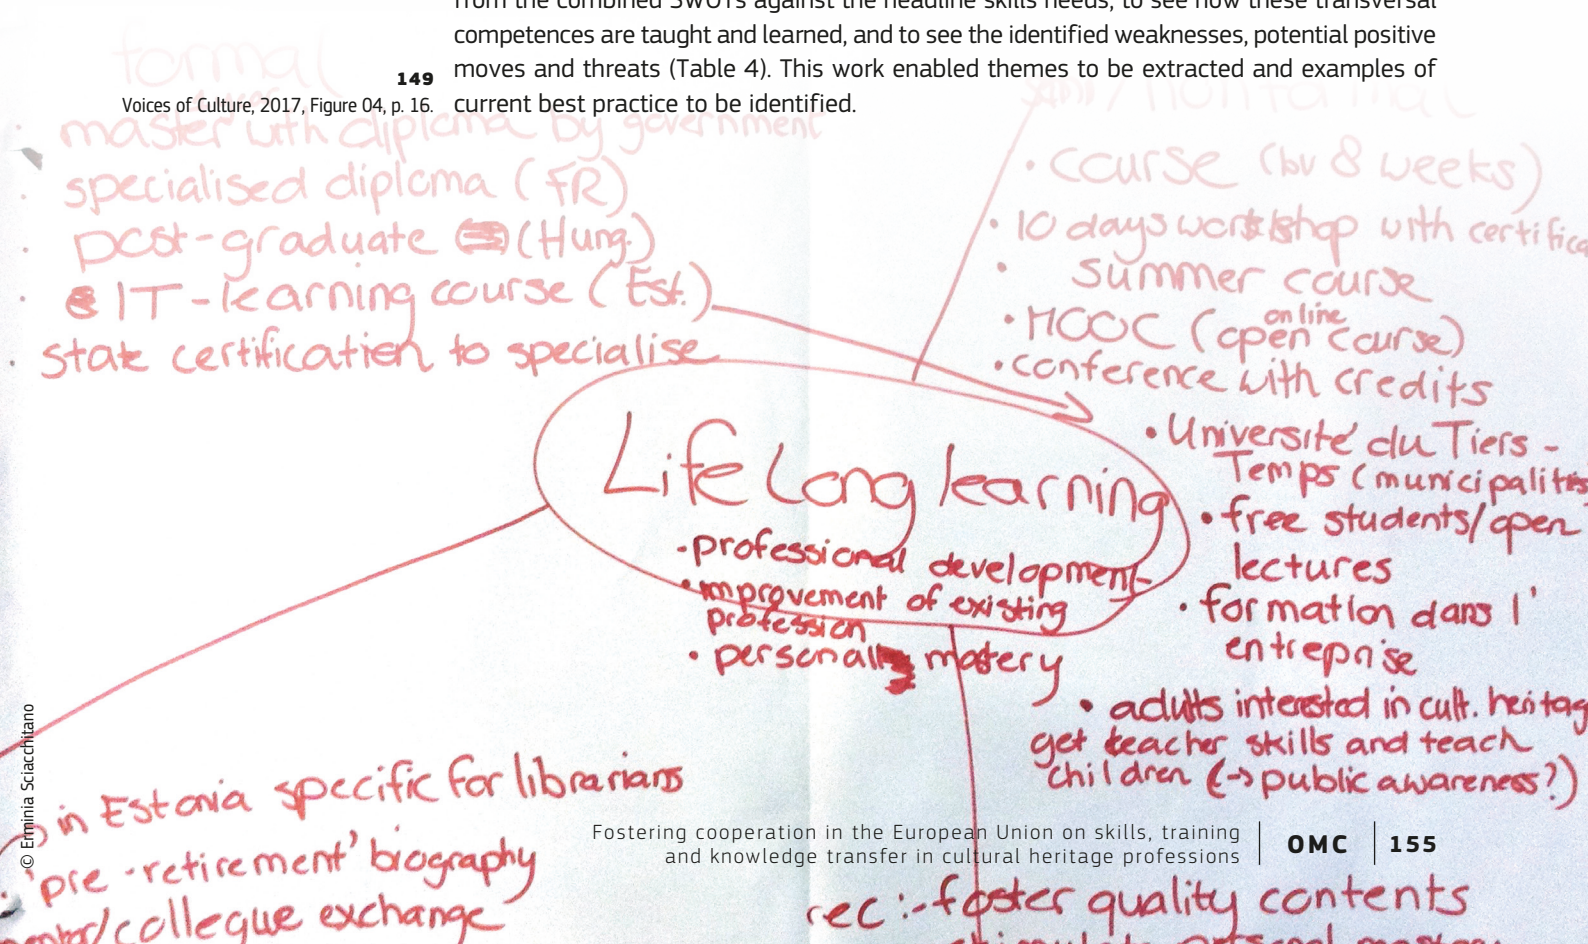 from the combined SWOTs against the headline skills needs, to see how these transversal
competences are taught and learned, and to see the identified weaknesses, potential positive
moves and threats (Table 4). This work enabled themes to be extracted and examples of
current best practice to be identified.
149
Voices of Culture, 2017, Figure 04, p. 16.
formal
master with diploma by government
specialised diploma (FR)
post-graduate (Hung.)
IT-learning course (Est.)
state certification to specialise
/nonformal
• course (bv 8 weeks)
• 10 days workshop with certifica
• summer course
• MOOC (open online course)
• conference with credits
• Université du Tiers-
Temps (municipalities
• free students/open
lectures
• formation dans l'
entreprise
• adults interested in cult. heritag
get teacher skills and teach
children (→ public awareness?)
Life Long learning
- professional development
• improvement of existing
profession
• personal mastery
in Estonia specific for librarians
'pre-retirement' biography
/collegue exchange
rec:- foster quality contents
© Erminia Sciacchitano
Fostering cooperation in the European Union on skills, training
and knowledge transfer in cultural heritage professions
OMC
155